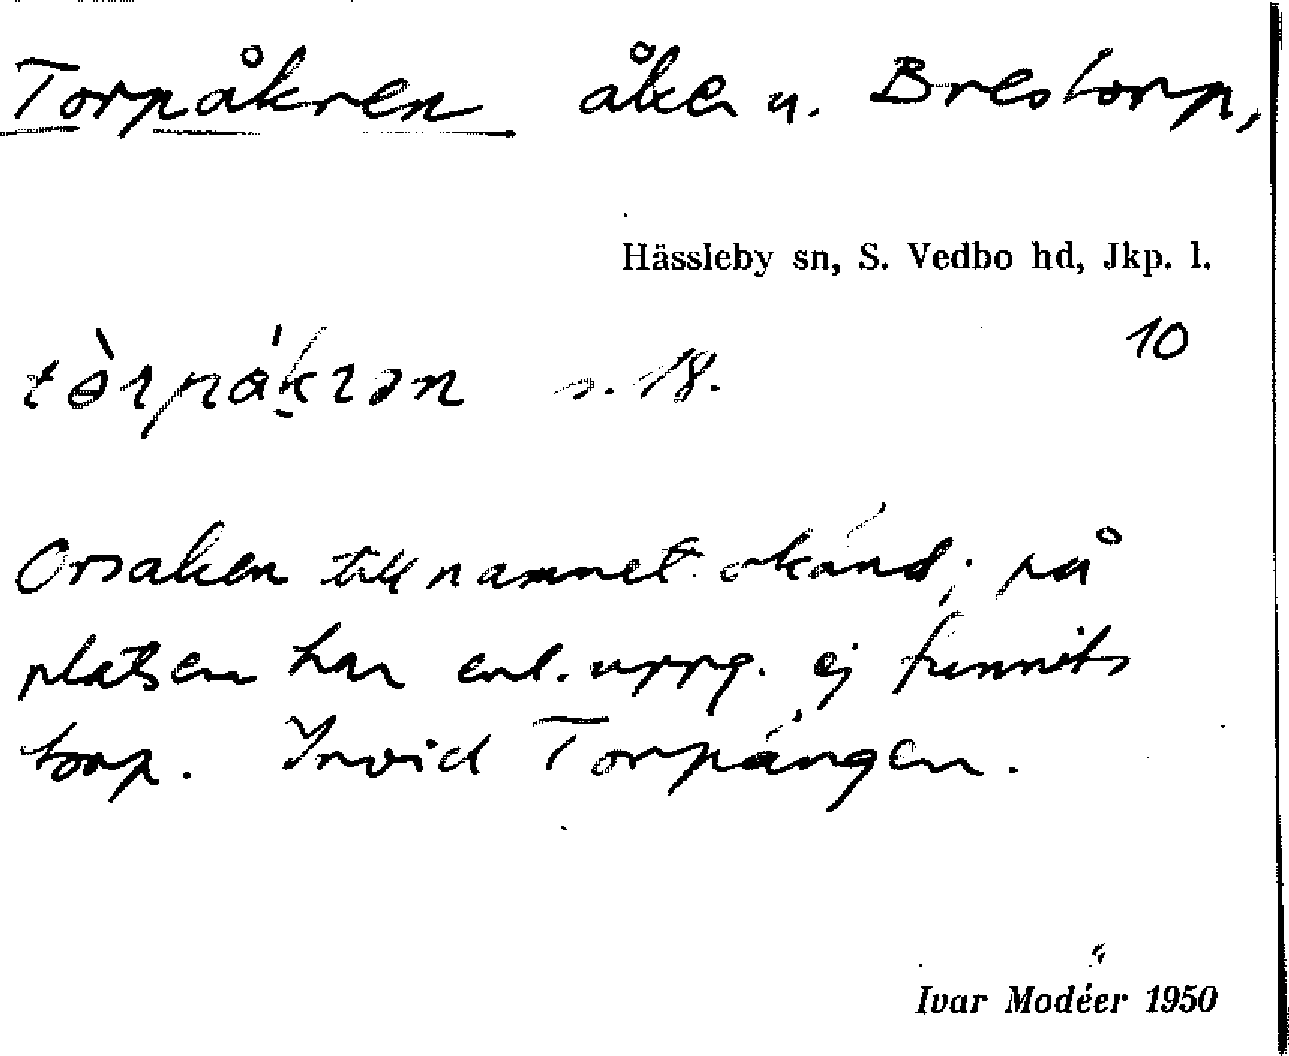 Torpåkren åker u. Brestorp,
Hässleby sn, S. Vedbo hd, Jkp. l.
10
tòrpåkrən s. 18.
Orsaken till namnet okänd; på
platsen har enl. uppg. ej funnits
torp. Invid Torpängen.
Ivar Modéer 1950